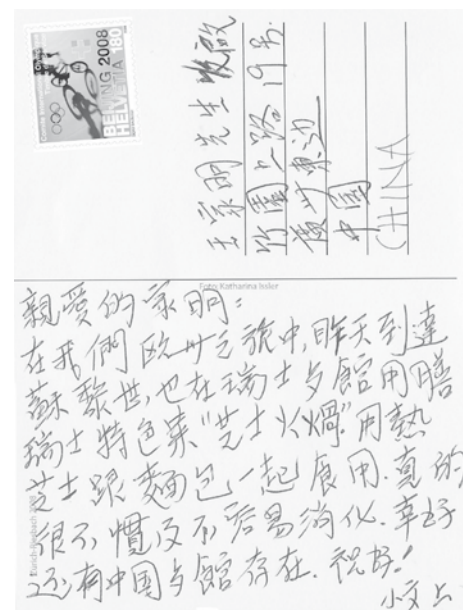 2008
HELVETIA 180
王家明先生 收啟
竹園上路19号.
中国
CHINA
Foto: Katharina Issler
親愛的家明:
在我們欧州之旅中,昨天到達
蘇黎世,也在瑞士歺館用膳
瑞士特色菜"芝士火煱".用熱
芝士跟麵包一起食用.真的
很不慣及不容易消化.幸好
还有中国歺館存在. 祝好!
小文上